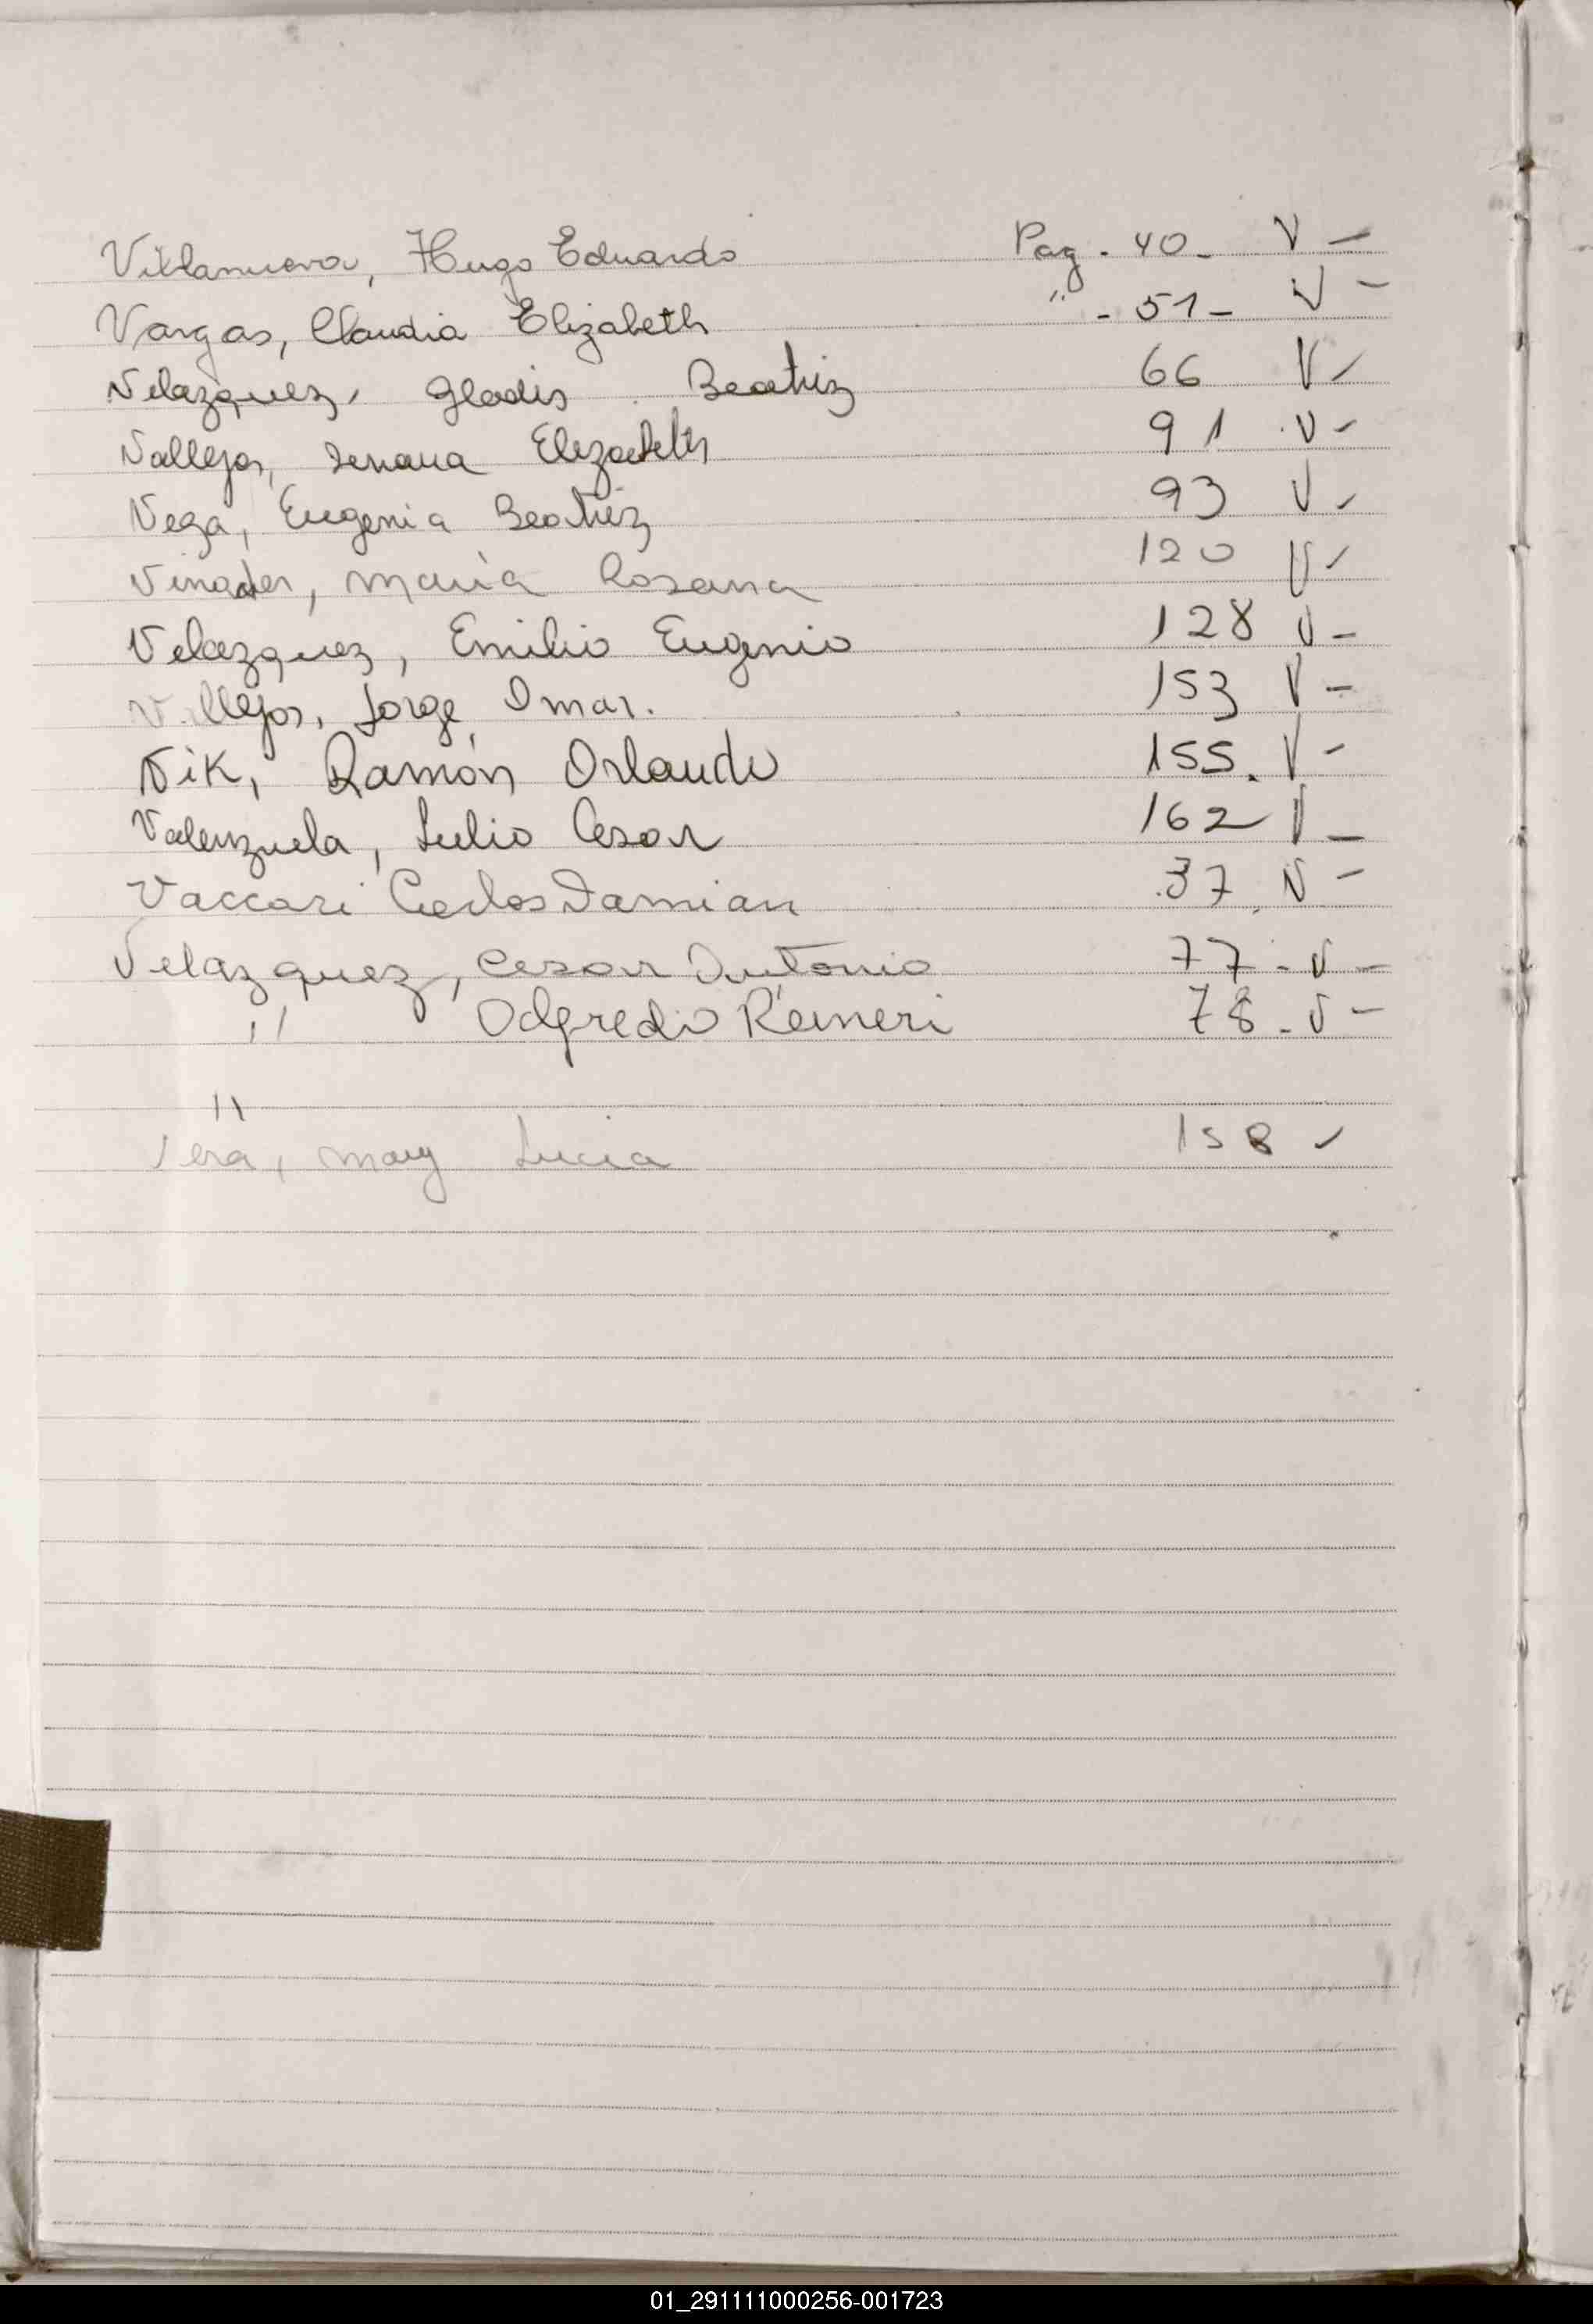 Villanueva, Hugo Eduardo Pag - 40 - V -
Vargas, Claudia Elizabeth " - 51 - V -
Velazquez, Gladis Beatriz 66 V -
Vallejos, Elizabeth 91 V -
Vega, Eugenia Beatriz 93 V -
Vinader, María Rosana 120 V -
Velazquez, Emilio Eugenio 128 V -
Vallejos, Jorge Omar. 153 V -
Vik, Ramón Orlando 155. V -
Valenzuela, Julio Cesar 162 V -
Vaccari Carlos Damian 37 V -
Velazquez, Cesar Antonio 77 - V -
" Odfredio Raineri 78 - V -
"
Vera, Mary Lucia 158 -
01_291111000256-001723